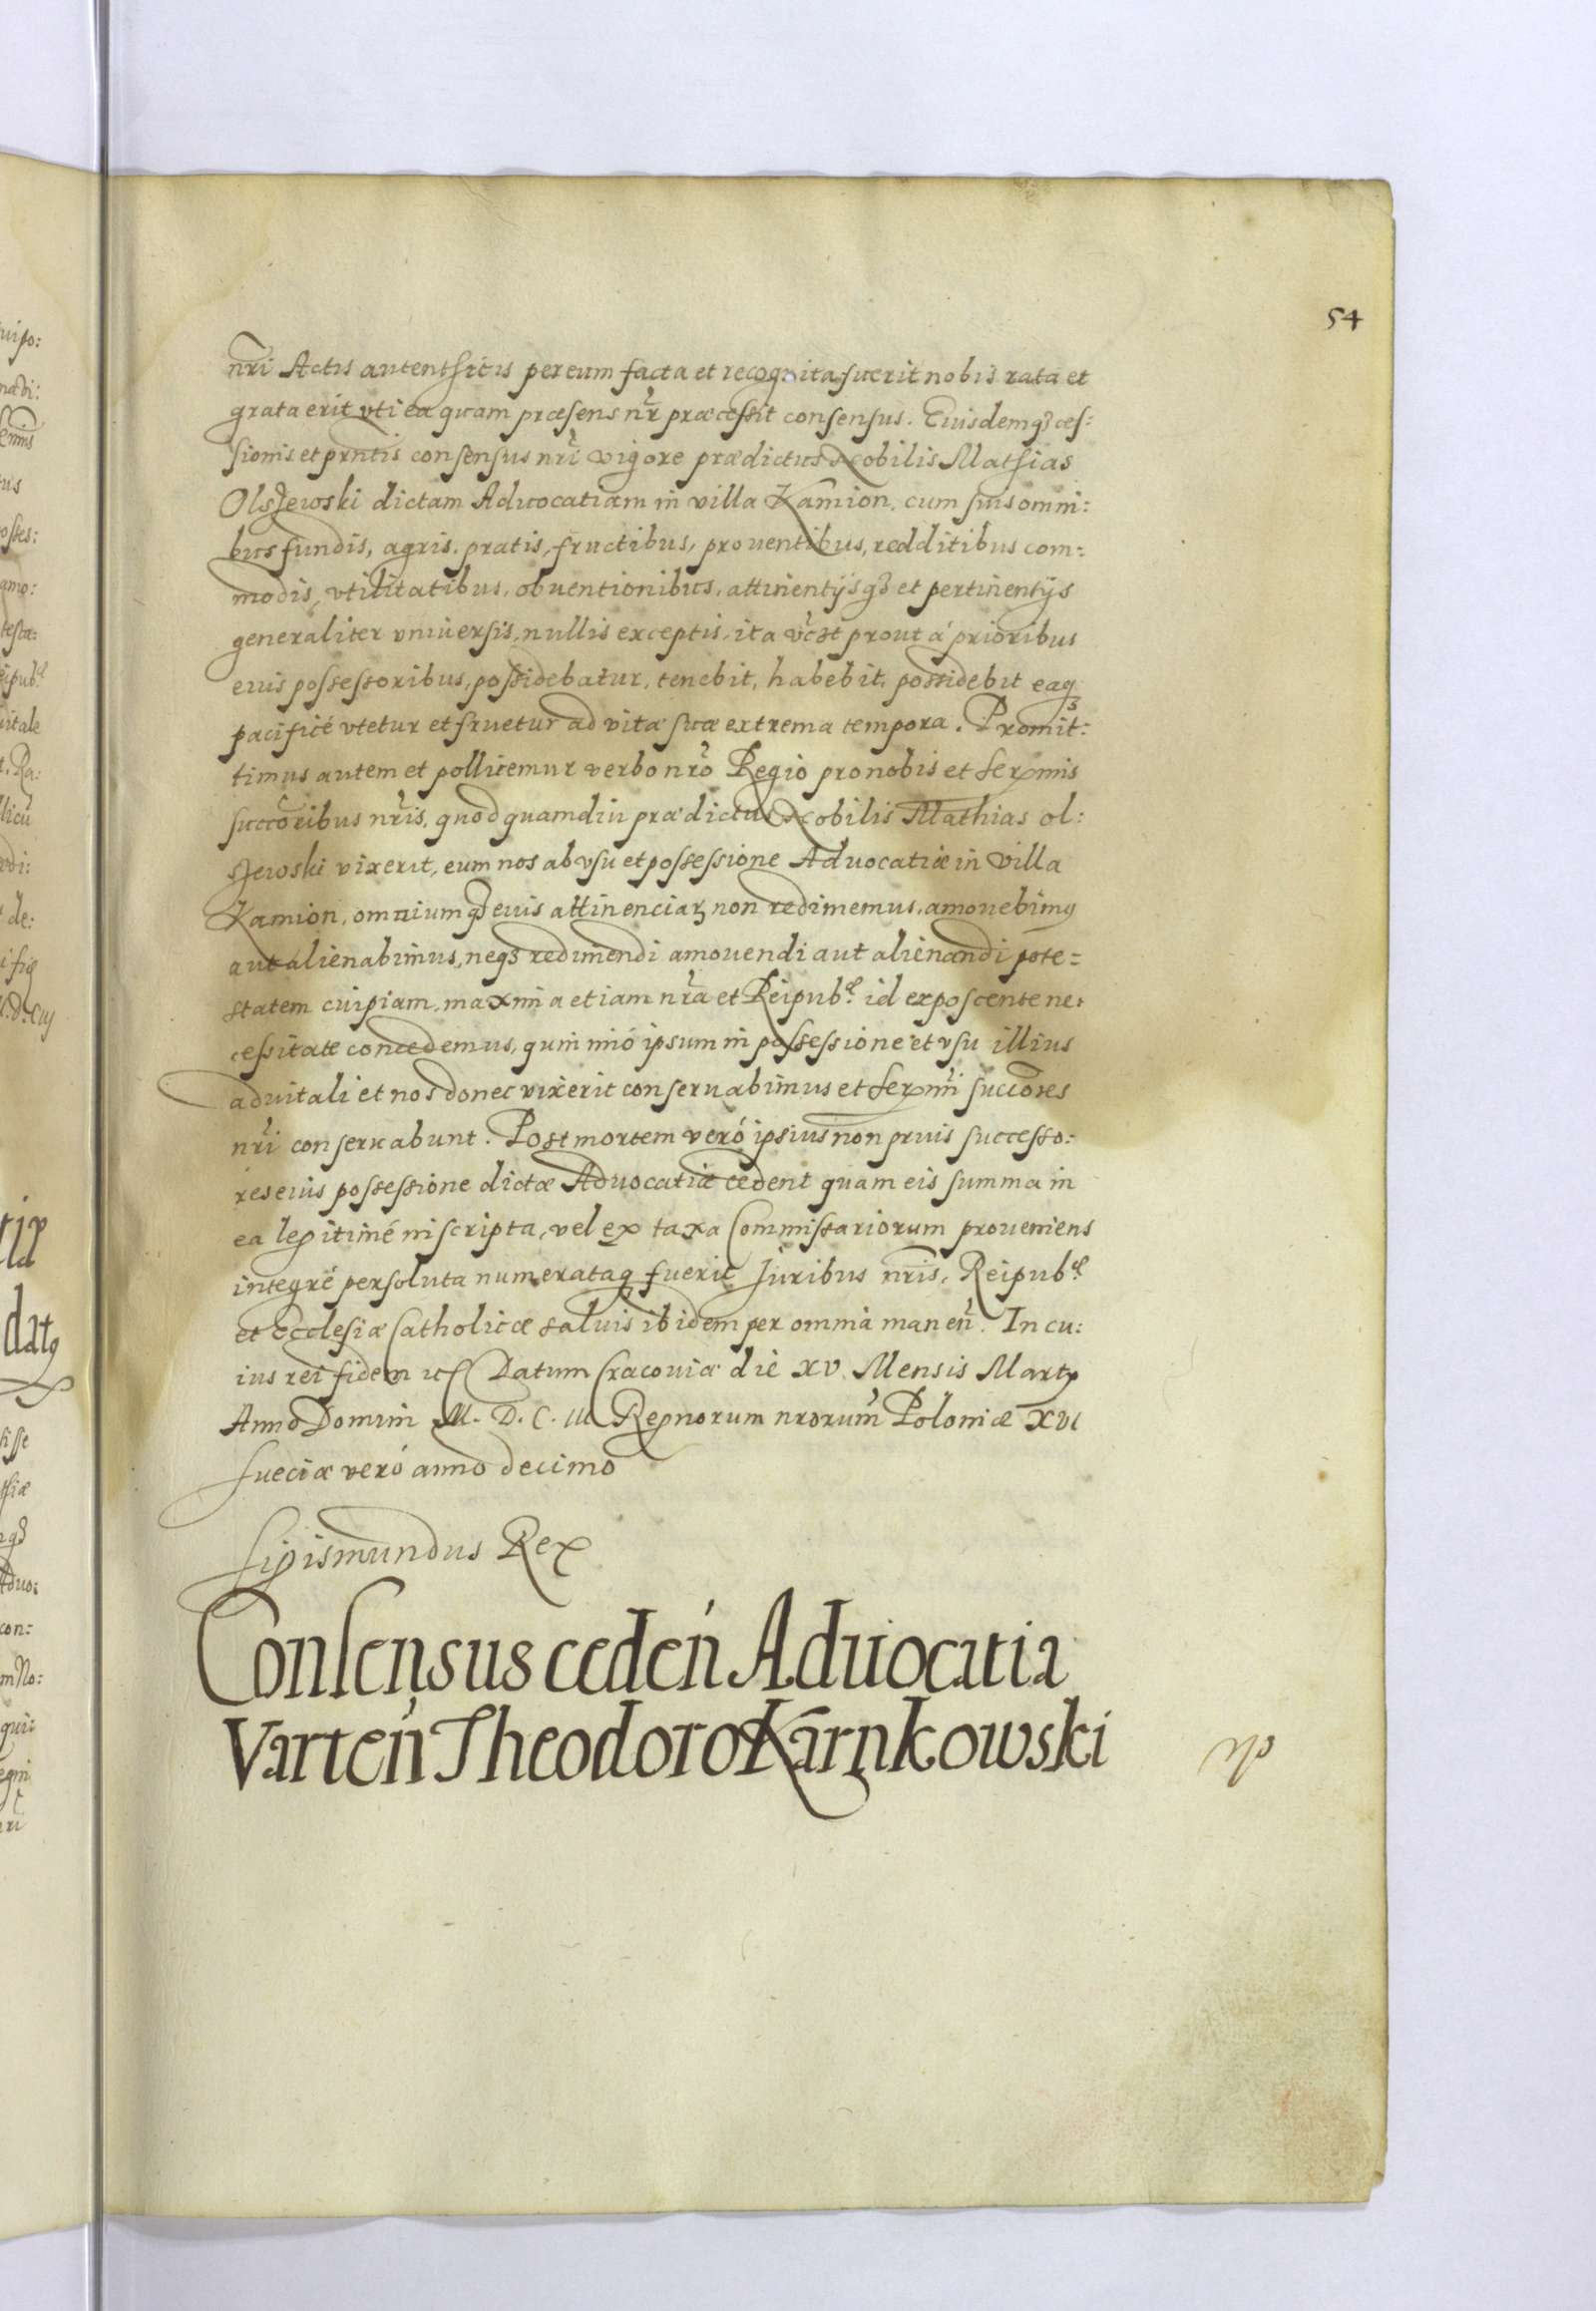 54
nri Actis autenthicis per eum facta et recognita fuerit nobis rata et
grata erit vti ea quam præsens nr præcessit consensus. Eiusdemq3 ces:
sionis et prntis consensus nri vigore prædictus Nobilis Mathias
Olszewski dictam Aduocatiam in villa Kamion, cum suis omni:
bus fundis, agris, pratis, fructibus, prouentibus, redditibus com:
modis, vtilitatibus, obuentionibus, attinentijsq3 et pertinentijs
generaliter vniuersis, nullis exceptis, ita prout á prioribus
eius possessoribus, possidebatur, tenebit, habebit, possidebit eaq3
pacificé vtetur et fruetur ad vitæ suæ extrema tempora. Promit:
timus autem et pollicemur verbo nro Regio pro nobis et Sermis
succoribus nris, quod quamdiu prædictus Nobilis Mathias Ol:
szewski vixerit, eum nos ab vsu et possessione Aduocatiæ in villa
Kamion, omniumq3 eius attinenciarz non redimemus, amouebimq
aut alienabimus, neq3 redimendi amouendi aut alienandi pote=
statem cuipiam, maxima etiam nra et Reipub. id exposcente ne:
cessitate concedemus, quin imó ipsum in possessione et vsu illius
aduitali et nos donec vixerit conseruabimus et Sermi succores
nri conseruabunt. Post mortem veró ipsius non prius successo:
res eius possessione dictæ Aduocatiæ cedent quam eis summa in
ea legitimé inscripta, vel ex taxa Commissariorum proueniens
integré persoluta numerataq fuerit Juribus nris, Reipub.
et Ecclesiæ Catholicæ saluis ibidem per omnia manen. In cu:
ius rei fidem Datum Cracouiæ die XV. Mensis Martij
Anno Domini M. D. C. III Regnorum nrorum Poloniæ XVI
Sueciæ veró anno decimo
Sigismundus Rex
Consensus ceden Aduocatia
Varten Theodoro Karnkowski